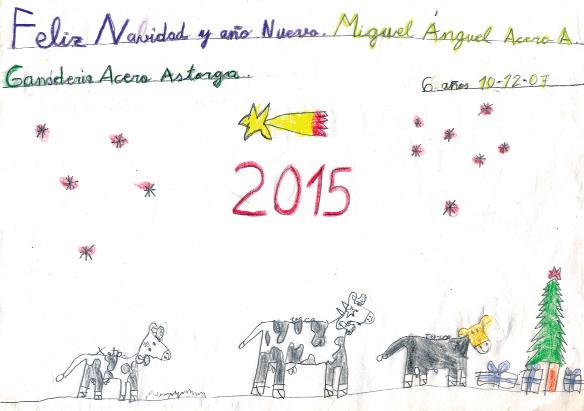 Feliz Navidad y año Nuevo. Miguel Ánguel Acero A.
Ganaderia Acero Astorga.
6 años 10-12-07
2015